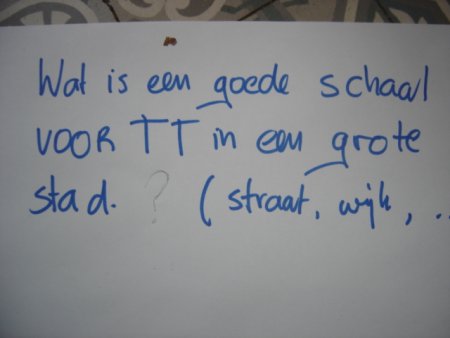 Wat is een goede schaal
VOOR TT in een grote
stad. ? (straat, wijk, ..